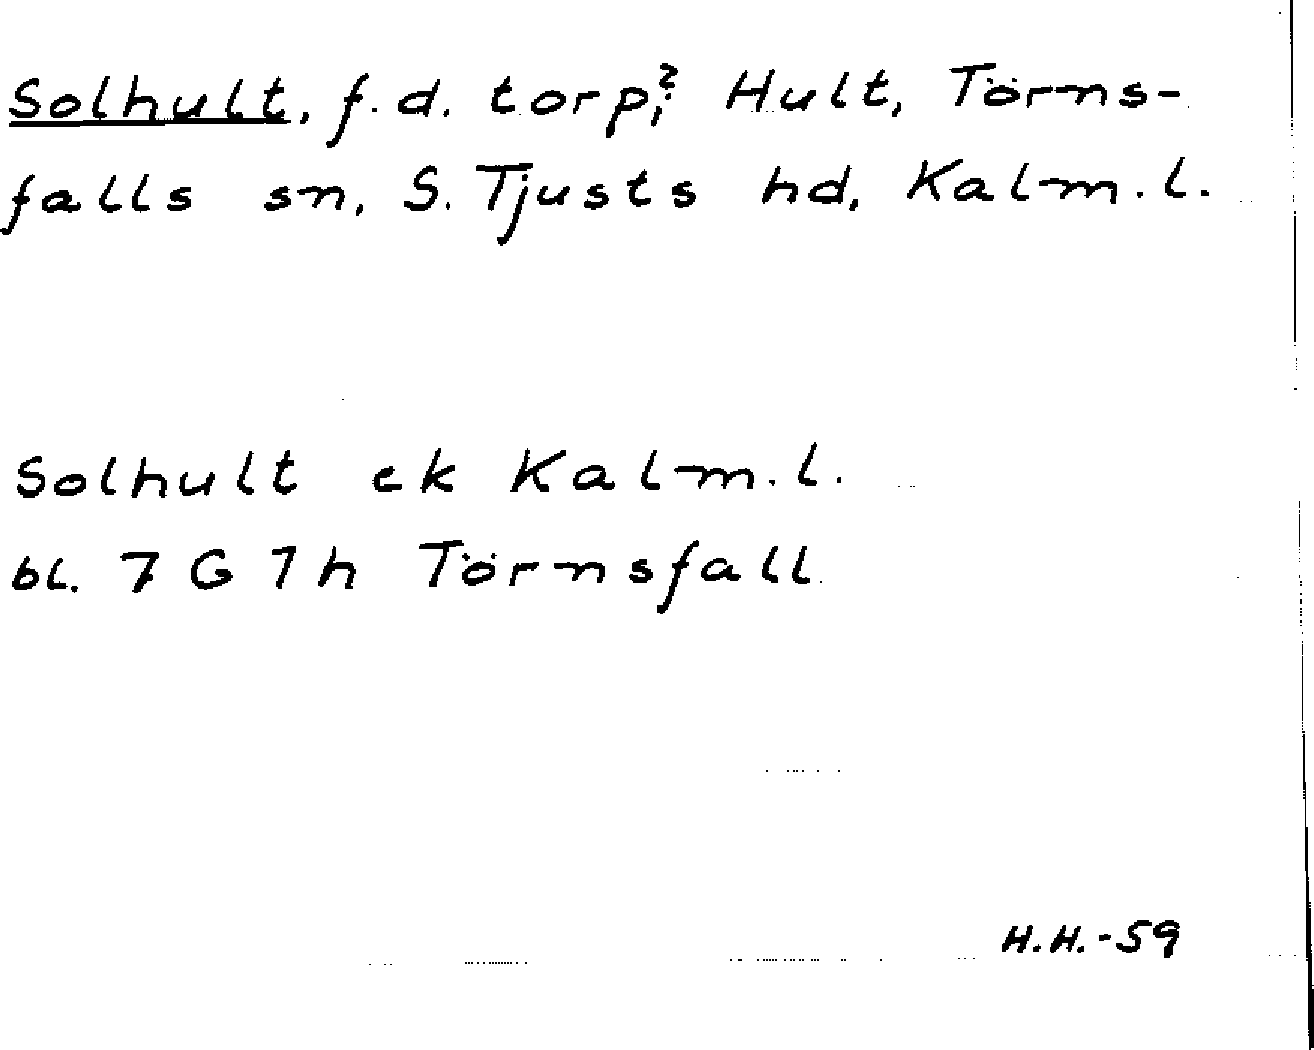 Solhult, f.d. torp,? Hult, Törns-
falls sn, S. Tjusts hd, Kalm.l.
Solhult ek Kalm.l.
bl. 7 G 7 h Törnsfall
H.H.-59